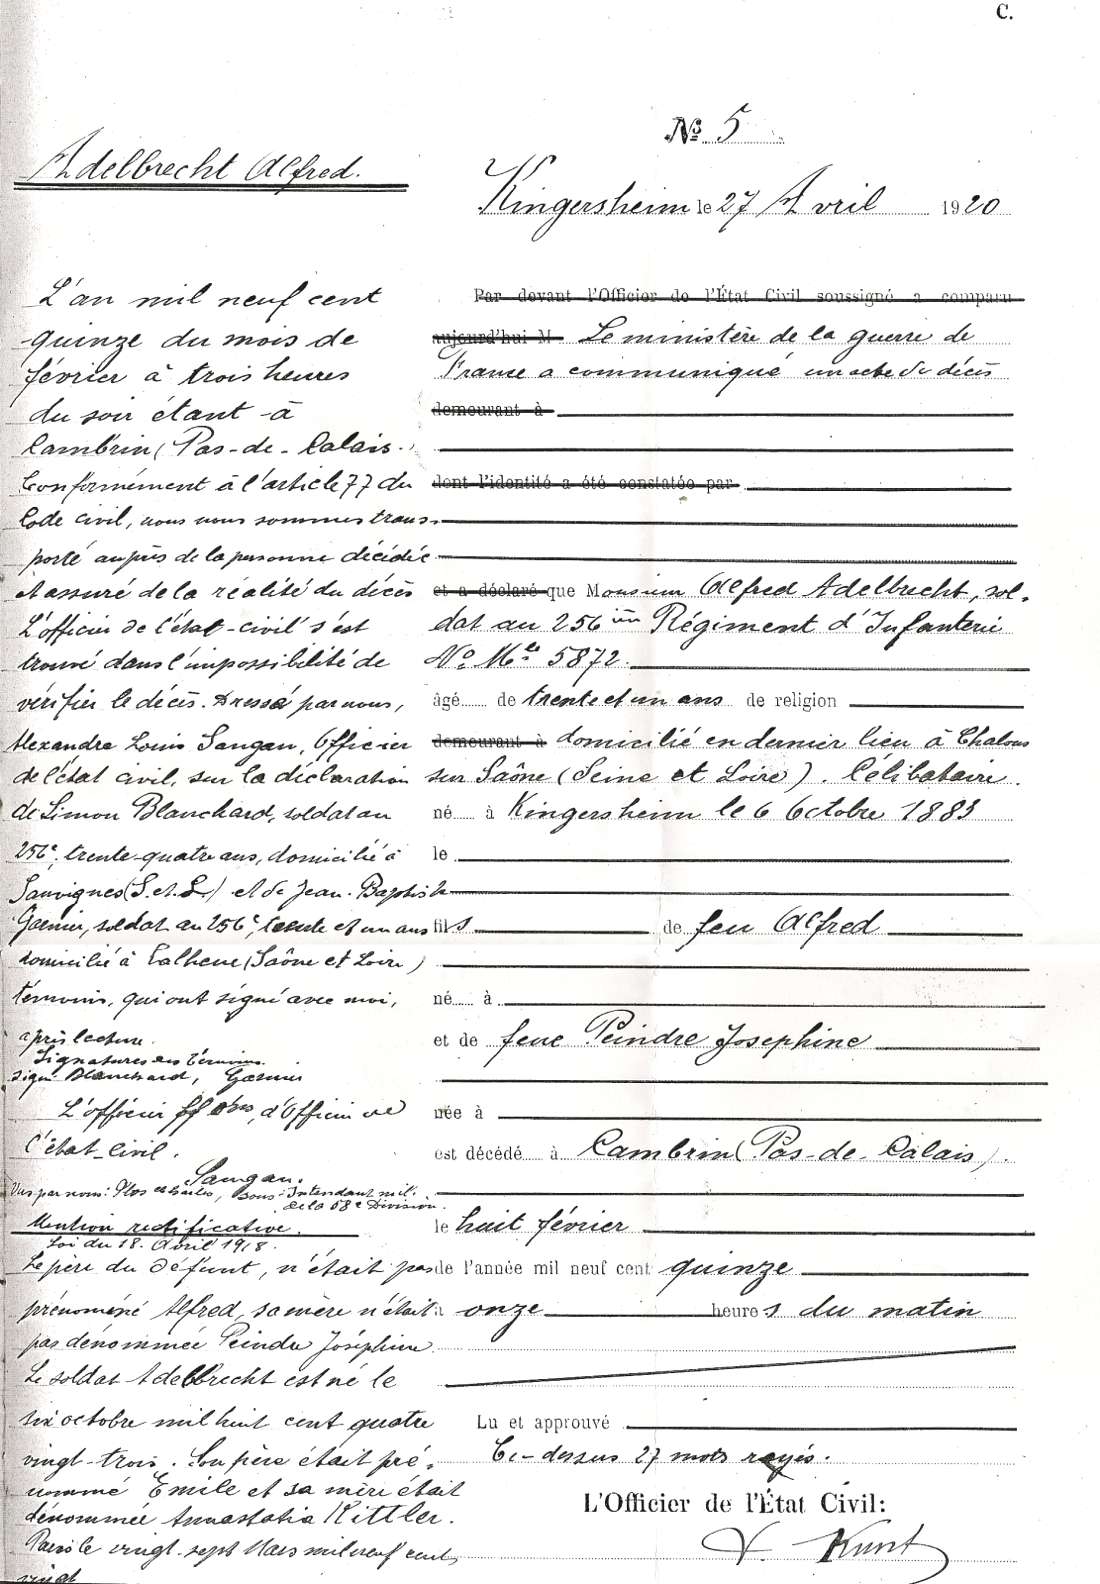 C.
Nº 5
Adelbrecht Alfred.
Kingersheim le 27 Avril 1920
L'an mil neuf cent
quinze du mois de
février à trois heures
du soir étant à
Cambrin (Pas-de-Calais.)
Conformément à l'article 77 du
Code civil, nous nous sommes trans-
porté auprès de la personne décédée
et assuré de la réalité du décès
L'officier de l'état-civil s'est
trouvé dans l'impossibilité de
vérifier le décès. Dressé par nous,
Alexandre Louis Sangan, Officier
de l'état civil, sur la déclaration
de Simon Blanchard, soldat au
256e, trente-quatre ans, domicilié à
Sanvignes (S.et.L.) et de Jean-Baptiste
Garnier, soldat au 256e, trente et un ans
domicilié à (Saône et Loire)
témoins, qui ont signé avec moi,
après lecture.
Signatures des témoins.
signé Blanchard, Garnier
L'officier ff ons, d'Officier de
l'état-civil.
Sangan.
Vu par nous: Charles, Sous-Intendant mil.
de la 58e Division.
Mention rectificative.
Loi du 18. Avril 1918.
Le père du défunt, n'était pas
prénommé Alfred, sa mère n'était
pas dénommée Peindre Joséphine.
Le soldat Adelbrecht est né le
six octobre mil huit cent quatre
vingt-trois. Son père était pré-
nommé Emile et sa mère était
dénommée Annastatia Kittler.
Paris le vingt-sept Mars mil neuf cent
vingt
Par devant l'Officier de l'État Civil soussigné a comparu
aujourd'hui M Le ministère de la guerre de
France a communiqué un acte de décès
demeurant à
dont l'identité a été constatée par
et a déclaré que Monsieur Alfred Adelbrecht, sol-
dat au 256ième Régiment d'Infanterie
No Mle 5872.
âgé de trente et un ans de religion
demeurant à domicilié en dernier lieu à Chalons
sur Saône (Seine et Loire). Célibataire.
né à Kingersheim le 6 Octobre 1883
le
fils de feu Alfred
né à
et de feue Peindre Josephine
née à
est décédé à Cambrin (Pas-de-Calais).
le huit février
de l'année mil neuf cent quinze
à onze heures du matin
Lu et approuvé
Ci-dessus 27 mots rayés.
L'Officier de l'État Civil:
Kunt